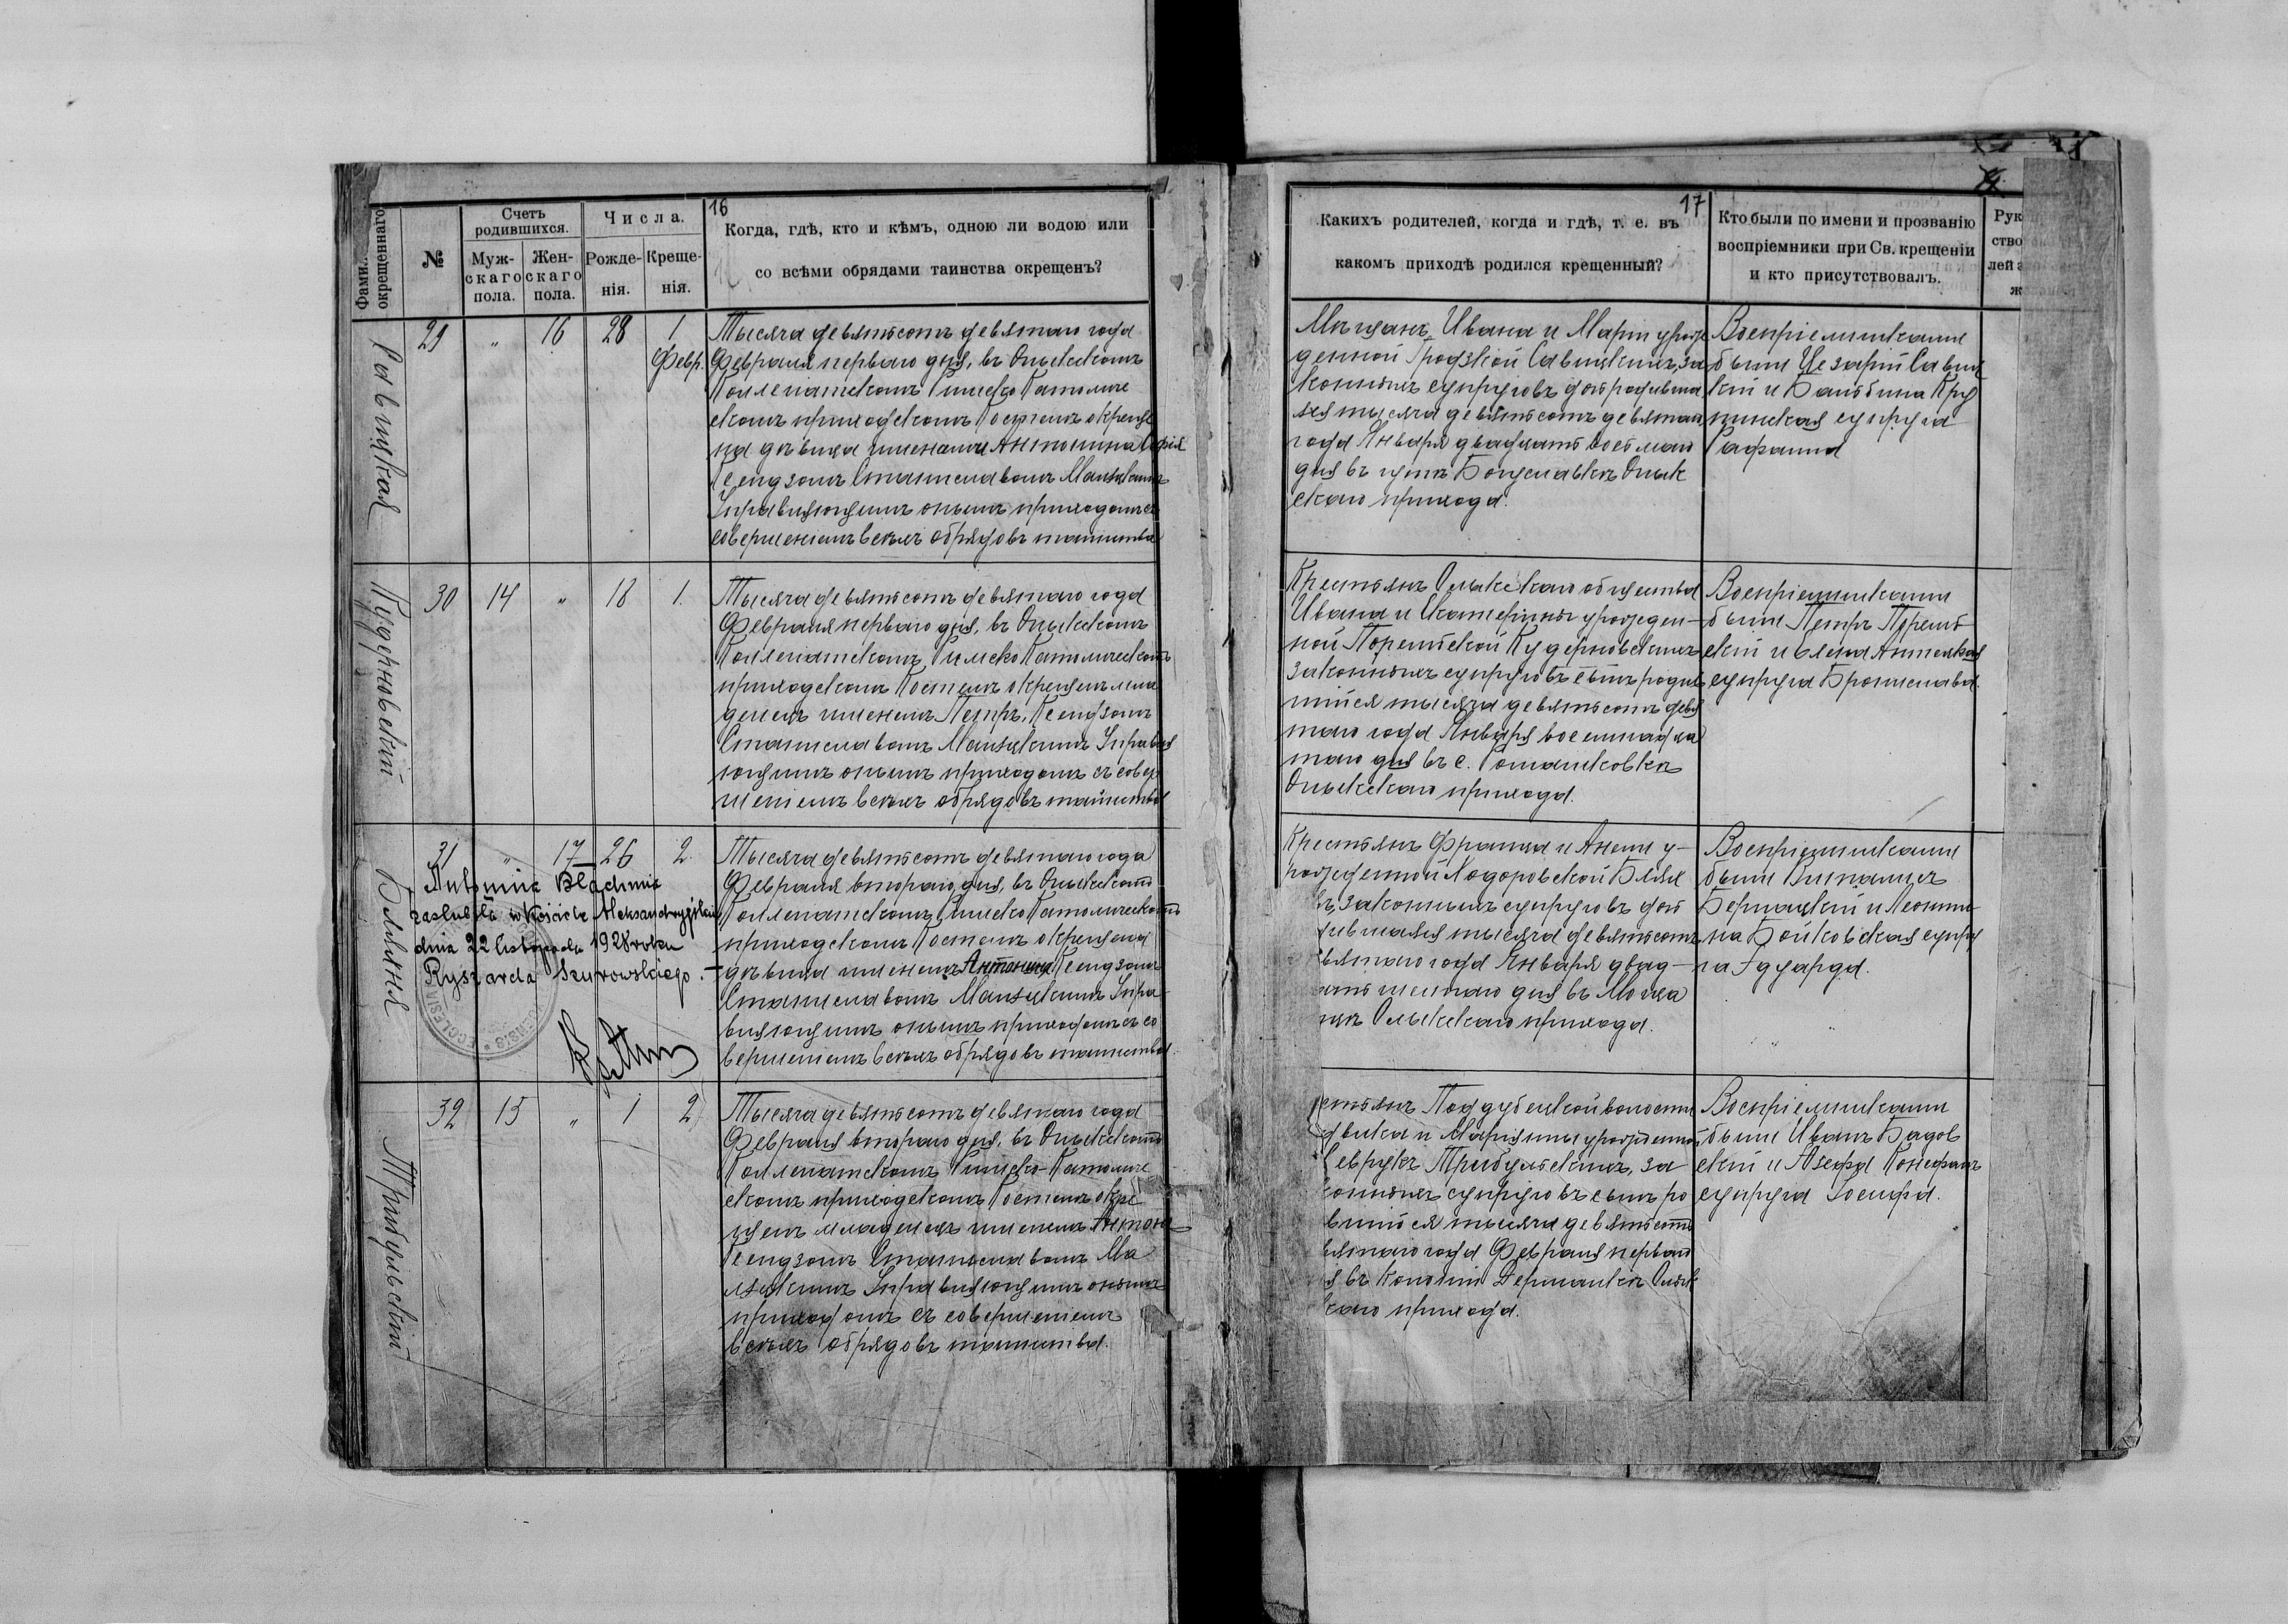 16
Фами.. окрещеннаго
№
Счетъ родившихся.
Муж-скаго пола.
Жен-скаго пола.
Числа.
Рожде-нія.
Креще-нія.
Когда, гдѣ, кто и кѣмъ, одною ли водою или
со всѣми обрядами таинства окрещенъ?
Савицкая
29 " 16 28 1 Февр.
Тысяча девятьсотъ девятаго года
Февраля перваго дня, въ Олыкскомъ
Коллегіатскомъ Римско Католиче
скомъ приходскомъ Костелѣ окреще
на дѣвица именами Антонина Софія
Ксендзомъ Станиславомъ
Управляющимъ онымъ приходомъ съ
совершеніемъ всѣхъ обрядовъ таинства
Кудерновскій
30 14 " 18 1.
Тысяча девятьсотъ девятаго года
Февраля перваго дня, въ Олыкскомъ
Коллегіатскомъ Римско Католическомъ
приходскомъ Костелѣ окрещенъ мла
денецъ именемъ Петръ, Ксендзомъ
Станиславомъ Управля
ющимъ онымъ приходомъ съ совер
шеніемъ всѣхъ обрядовъ таинства
Бляхня
31 " 17 26 2.
Antonina Blachnia
zaślubiła w Kościele Aleksandryjskim
dnia 22 listopada 1928 roku
Ryszarda Szurowskiego.
Тысяча девятьсотъ девятаго года
Февраля втораго дня, въ Олыкскомъ
Коллегіатскомъ Римско Католическомъ
приходскомъ Костелѣ окрещена
дѣвица именемъ Антонина Ксендзомъ
Станиславомъ Упра
вляющимъ онымъ приходомъ съ со
вершеніемъ всѣхъ обрядовъ таинства.
Трибульскій
32 15 " 1 2
Тысяча девятьсотъ девятаго года
Февраля втораго дня, въ Олыкскомъ
Коллегіатскомъ Римско-Католиче
скомъ приходскомъ Костелѣ окре
щенъ младенецъ именемъ Антонъ
Ксендзомъ Станиславомъ
Управляющимъ онымъ
приходомъ съ совершеніемъ
всѣхъ обрядовъ таинства.
17
Какихъ родителей, когда и гдѣ, т. е. въ
какомъ приходѣ родился крещенный?
Кто были по имени и прозванію
воспріемники при Св. крещеніи
и кто присутствовалъ.
Рук
ство
лей
ж
Мѣщанъ Ивана и Маріи урож
денной Гродзкой Савицкихъ, за
конныхъ супруговъ дочь родивша
яся тысяча девятьсотъ девятаго
года Января двадцать восьмаго
дня въ Богуславкѣ Олык
скаго прихода.
Воспріемниками
были Цезарій Савиц
кій и Бальбина Кру
пинская супруга
Рафаила
Крестьянъ Олыкскаго общества
Ивана и Екатерины урожден-
ной Кудерновскихъ
законныхъ супруговъ сынъ родив
шійся тысяча девятьсотъ девя
таго года Января восемнадца
таго дня въ с. Ромашковкѣ
Олыкскаго прихода.
Воспріемниками
были Петръ
скій и Елена
супруга Бронислава.
Крестьянъ Франца и Анны у-
рожденной Ходоровской Блях
ъ, законныхъ супруговъ дочь
дившаяся тысяча девятьсотъ
вятаго года Января двад-
цать шестаго дня въ
Олыкскаго прихода.
Воспріемниками
были
Бернацкій и Леонти-
на Бойковская супру
га Эдуарда.
естьянъ Поддубецкой волости
двика и Маріанны урожденной
Севрукъ Трибульскихъ, за
конныхъ супруговъ сынъ ро
вшійся тысяча девятьсотъ
вятаго года Февраля перваго
я въ колоніи Дерманкѣ Олык
скаго прихода.
Воспріемниками
были Иванъ Бадов
скій и Юзефа
супруга Іосифа.